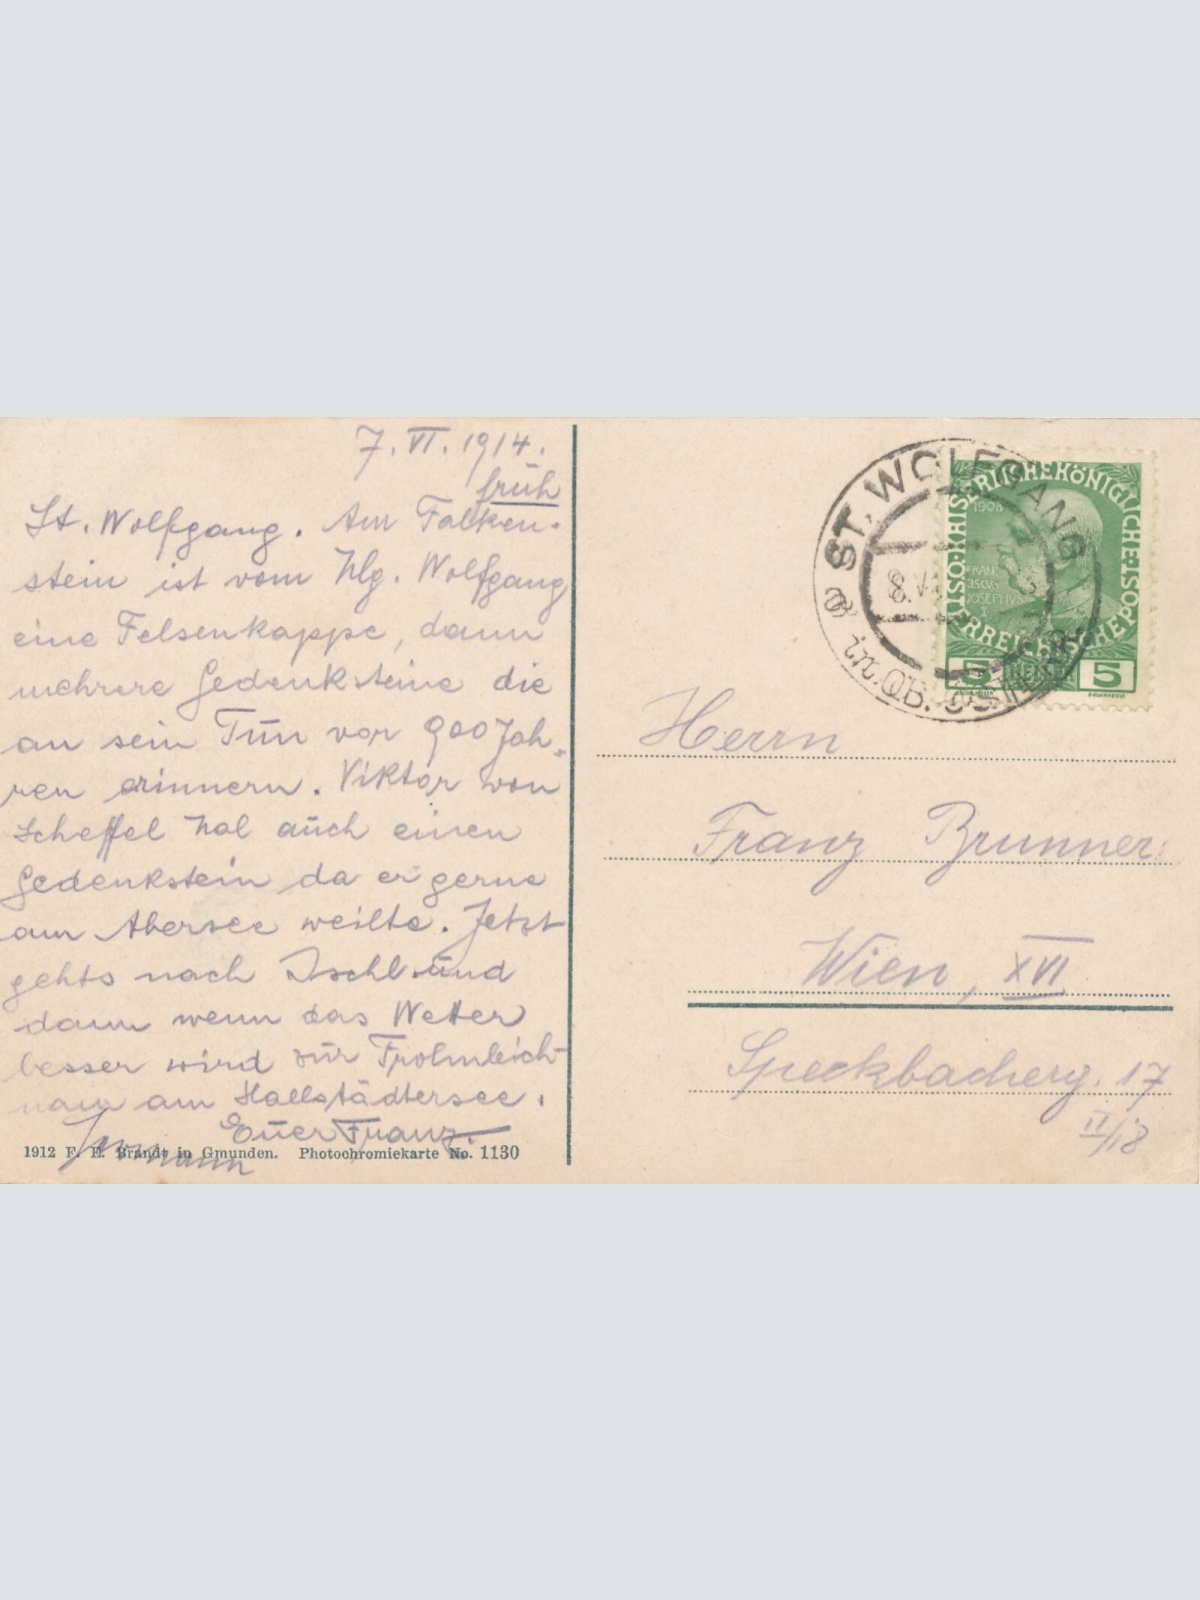 7. VI. 1914.
früh
St. Wolfgang. Am Falken-
stein ist vom hlg. Wolfgang
eine Felsenkappe, dann
mehrere Gedenksteine die
an sein Tun vor 900 Jah-
ren erinnern. Viktor von
Scheffel hat auch einen
Gedenkstein da er gerne
am Abersee weilte. Jetzt
gehts nach Ischl und
dann wenn das Wetter
besser wird zur Frohnleich-
nam am Hallstädtersee.
Euer Franz.
1912 F. E. Brandt in Gmunden. Photochromiekarte No. 1130
ST. WOLFGANG
8. VI
in OB. ÖST.
KAISERLICHE KÖNIGLICHE ÖSTERREICHISCHE POST
1908
FRAN
CISCVS
JOSEPHVS
I
5 5
Herrn
Franz Brunner
Wien, XVI
Speckbacherg. 17
II/18